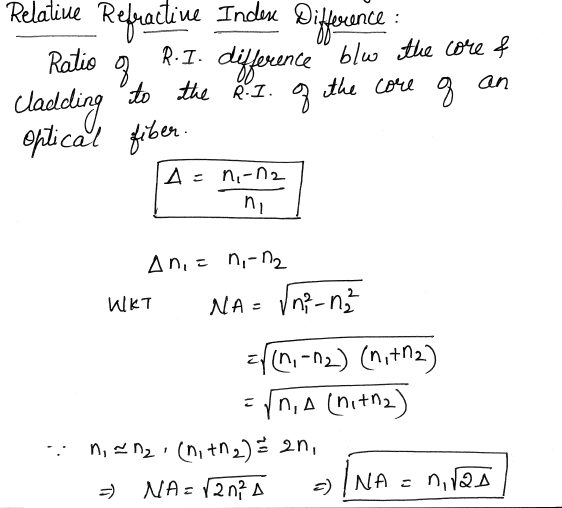 Relative Refractive Index Difference :
Ratio of R.I. difference b/w the core &
cladding to the R.I. of the core of an
optical fiber.
Δ = (n₁-n₂)/n₁
Δn₁ = n₁-n₂
WKT NA = √(n₁²-n₂²)
= √((n₁-n₂) (n₁+n₂))
= √(n₁Δ (n₁+n₂))
∵ n₁ ≃ n₂ , (n₁+n₂) ≅ 2n₁
⇒ NA = √(2n₁²Δ) ⇒ NA = n₁√(2Δ)